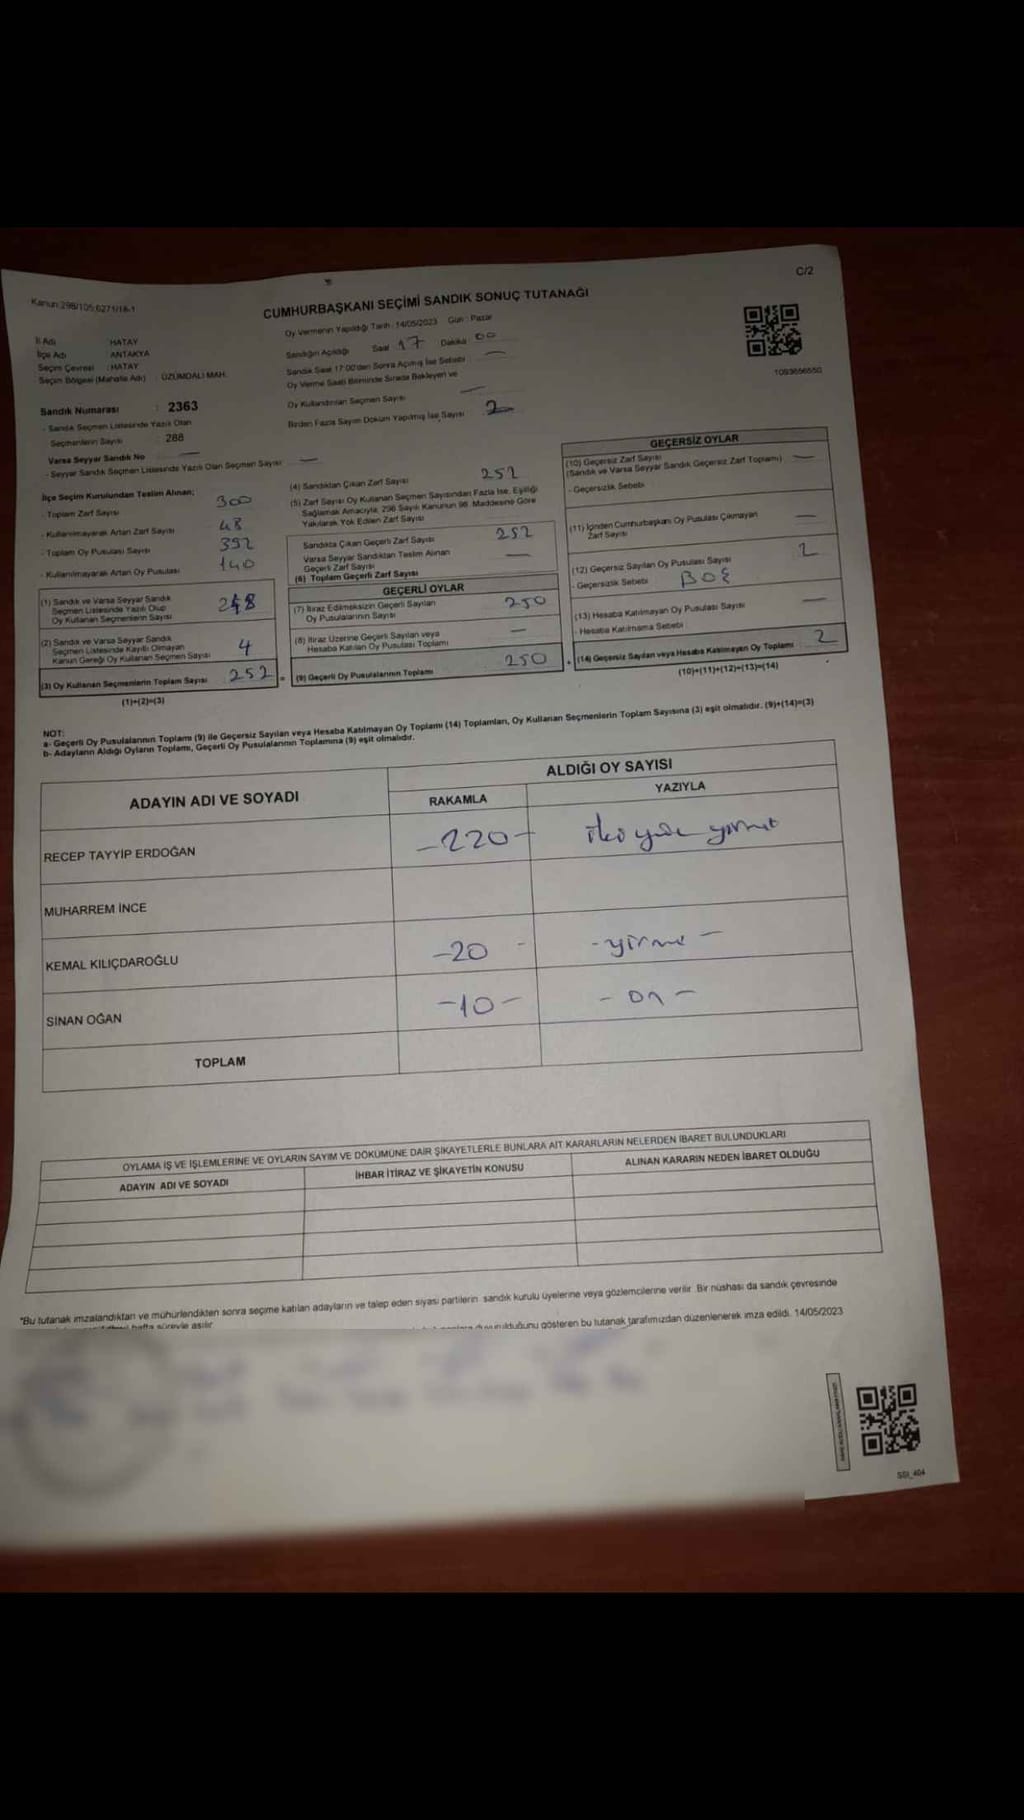 C/2
Kanun:298/105;6271/18-1
CUMHURBAŞKANI SEÇİMİ SANDIK SONUÇ TUTANAĞI
Oy Vermenin Yapıldığı Tarih : 14/05/2023 Gün : Pazar
İl Adı : HATAY
İlçe Adı : ANTAKYA
Seçim Çevresi : HATAY
Seçim Bölgesi (Mahalle Adı) : ÜZÜMDALI MAH.
Sandığın Açıldığı Saat 17 Dakika 00
Sandık Saat 17:00'den Sonra Açılmış İse Sebebi : —
Oy Verme Saati Bitiminde Sırada Bekleyen ve
Oy Kullandırılan Seçmen Sayısı —
Birden Fazla Sayım Döküm Yapılmış İse Sayısı 2
1093656550
Sandık Numarası : 2363
- Sandık Seçmen Listesinde Yazılı Olan
Seçmenlerin Sayısı : 288
Varsa Seyyar Sandık No —
- Seyyar Sandık Seçmen Listesinde Yazılı Olan Seçmen Sayısı —
İlçe Seçim Kurulundan Teslim Alınan;
- Toplam Zarf Sayısı 300
- Kullanılmayarak Artan Zarf Sayısı 48
- Toplam Oy Pusulası Sayısı 392
- Kullanılmayarak Artan Oy Pusulası 140
(1) Sandık ve Varsa Seyyar Sandık
Seçmen Listesinde Yazılı Olup
Oy Kullanan Seçmenlerin Sayısı 248
(2) Sandık ve Varsa Seyyar Sandık
Seçmen Listesinde Kayıtlı Olmayan
Kanun Gereği Oy Kullanan Seçmen Sayısı 4
(3) Oy Kullanan Seçmenlerin Toplam Sayısı 252
(1)+(2)=(3)
(4) Sandıktan Çıkan Zarf Sayısı 252
(5) Zarf Sayısı Oy Kullanan Seçmen Sayısından Fazla İse, Eşitliği
Sağlamak Amacıyla, 298 Sayılı Kanunun 98. Maddesine Göre
Yakılarak Yok Edilen Zarf Sayısı
Sandıkta Çıkan Geçerli Zarf Sayısı 252
Varsa Seyyar Sandıktan Teslim Alınan
Geçerli Zarf Sayısı —
(6) Toplam Geçerli Zarf Sayısı
GEÇERLİ OYLAR
(7) İtiraz Edilmeksizin Geçerli Sayılan
Oy Pusulalarının Sayısı 250
(8) İtiraz Üzerine Geçerli Sayılan veya
Hesaba Katılan Oy Pusulası Toplamı —
(9) Geçerli Oy Pusulalarının Toplamı 250
GEÇERSİZ OYLAR
(10) Geçersiz Zarf Sayısı
(Sandık ve Varsa Seyyar Sandık Geçersiz Zarf Toplamı) —
- Geçersizlik Sebebi
(11) İçinden Cumhurbaşkanı Oy Pusulası Çıkmayan
Zarf Sayısı —
(12) Geçersiz Sayılan Oy Pusulası Sayısı 2
- Geçersizlik Sebebi BOŞ
(13) Hesaba Katılmayan Oy Pusulası Sayısı —
- Hesaba Katılmama Sebebi :
(14) Geçersiz Sayılan veya Hesaba Katılmayan Oy Toplamı 2
(10)+(11)+(12)+(13)=(14)
NOT:
a- Geçerli Oy Pusulalarının Toplamı (9) ile Geçersiz Sayılan veya Hesaba Katılmayan Oy Toplamı (14) Toplamları, Oy Kullanan Seçmenlerin Toplam Sayısına (3) eşit olmalıdır. (9)+(14)=(3)
b- Adayların Aldığı Oyların Toplamı, Geçerli Oy Pusulalarının Toplamına (9) eşit olmalıdır.
ADAYIN ADI VE SOYADI ALDIĞI OY SAYISI
RAKAMLA YAZIYLA
RECEP TAYYİP ERDOĞAN -220- iki yüz yirmi
MUHARREM İNCE
KEMAL KILIÇDAROĞLU -20- -yirmi-
SİNAN OĞAN -10- -on-
TOPLAM
OYLAMA İŞ VE İŞLEMLERİNE VE OYLARIN SAYIM VE DÖKÜMÜNE DAİR ŞİKAYETLERLE BUNLARA AİT KARARLARIN NELERDEN İBARET BULUNDUKLARI
ADAYIN ADI VE SOYADI İHBAR İTİRAZ VE ŞİKAYETİN KONUSU ALINAN KARARIN NEDEN İBARET OLDUĞU
"Bu tutanak imzalandıktan ve mühürlendikten sonra seçime katılan adayların ve talep eden siyasi partilerin sandık kurulu üyelerine veya gözlemcilerine verilir. Bir nüshası da sandık çevresinde
hafta süreyle asılır. duyurulduğunu gösteren bu tutanak tarafımızdan düzenlenerek imza edildi. 14/05/2023
SSI_404